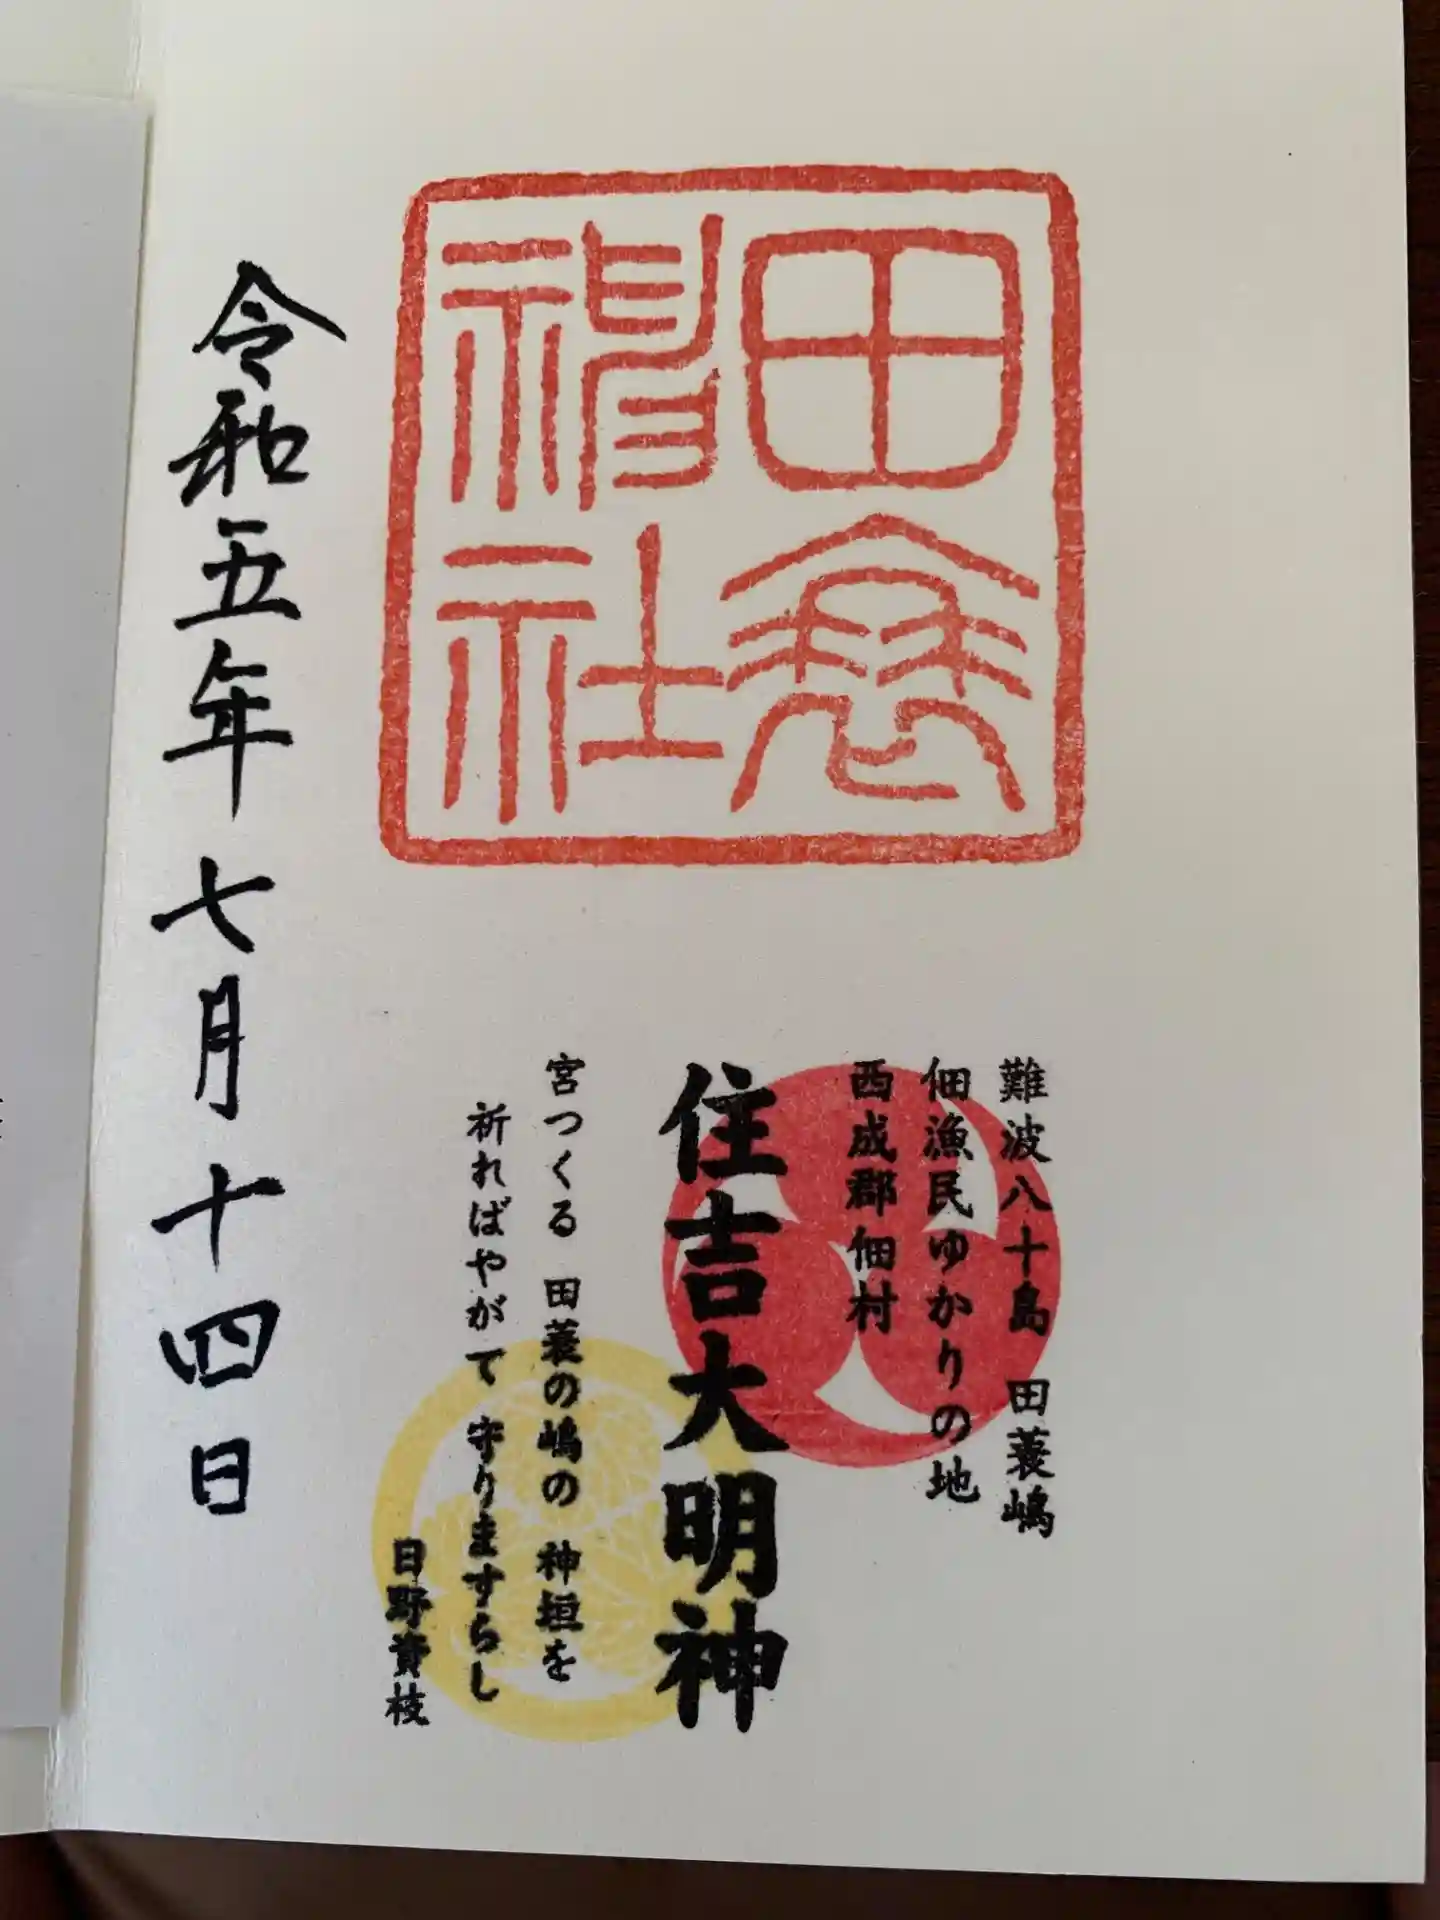 田蓑
神社
難波八十島　田蓑嶋
佃漁民ゆかりの地
西成郡佃村
住吉大明神
宮つくる　田蓑の嶋の　神垣を
祈ればやがて　守りますらし
日野資枝
令和五年七月十四日